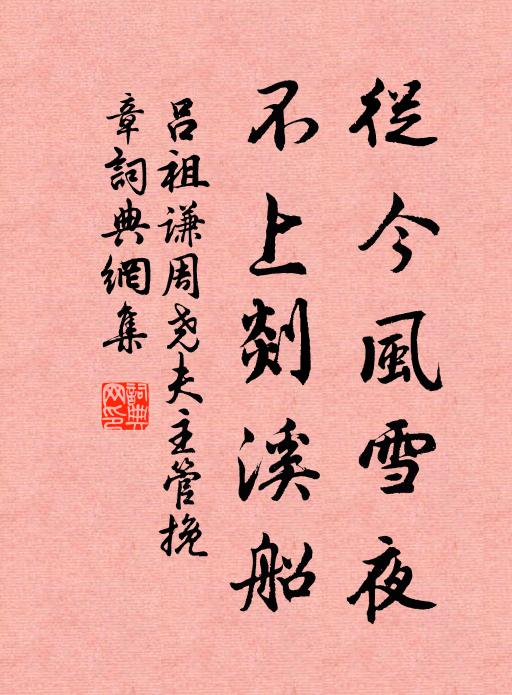 從今風雪夜
不上剡溪船
吕祖謙周堯夫主管挽
章詞典網集
詞典網印